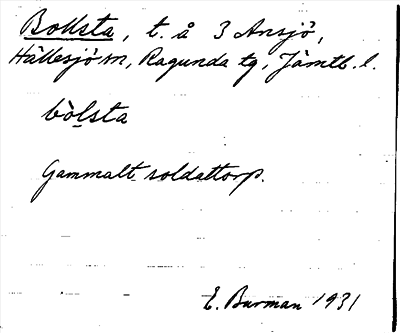 Bollsta, t. å 3 Ansjö,
Hällesjö sn, Ragunda tg, Jämtl. l.
bòlsta
Gammalt soldattorp.
E. Burman 1931